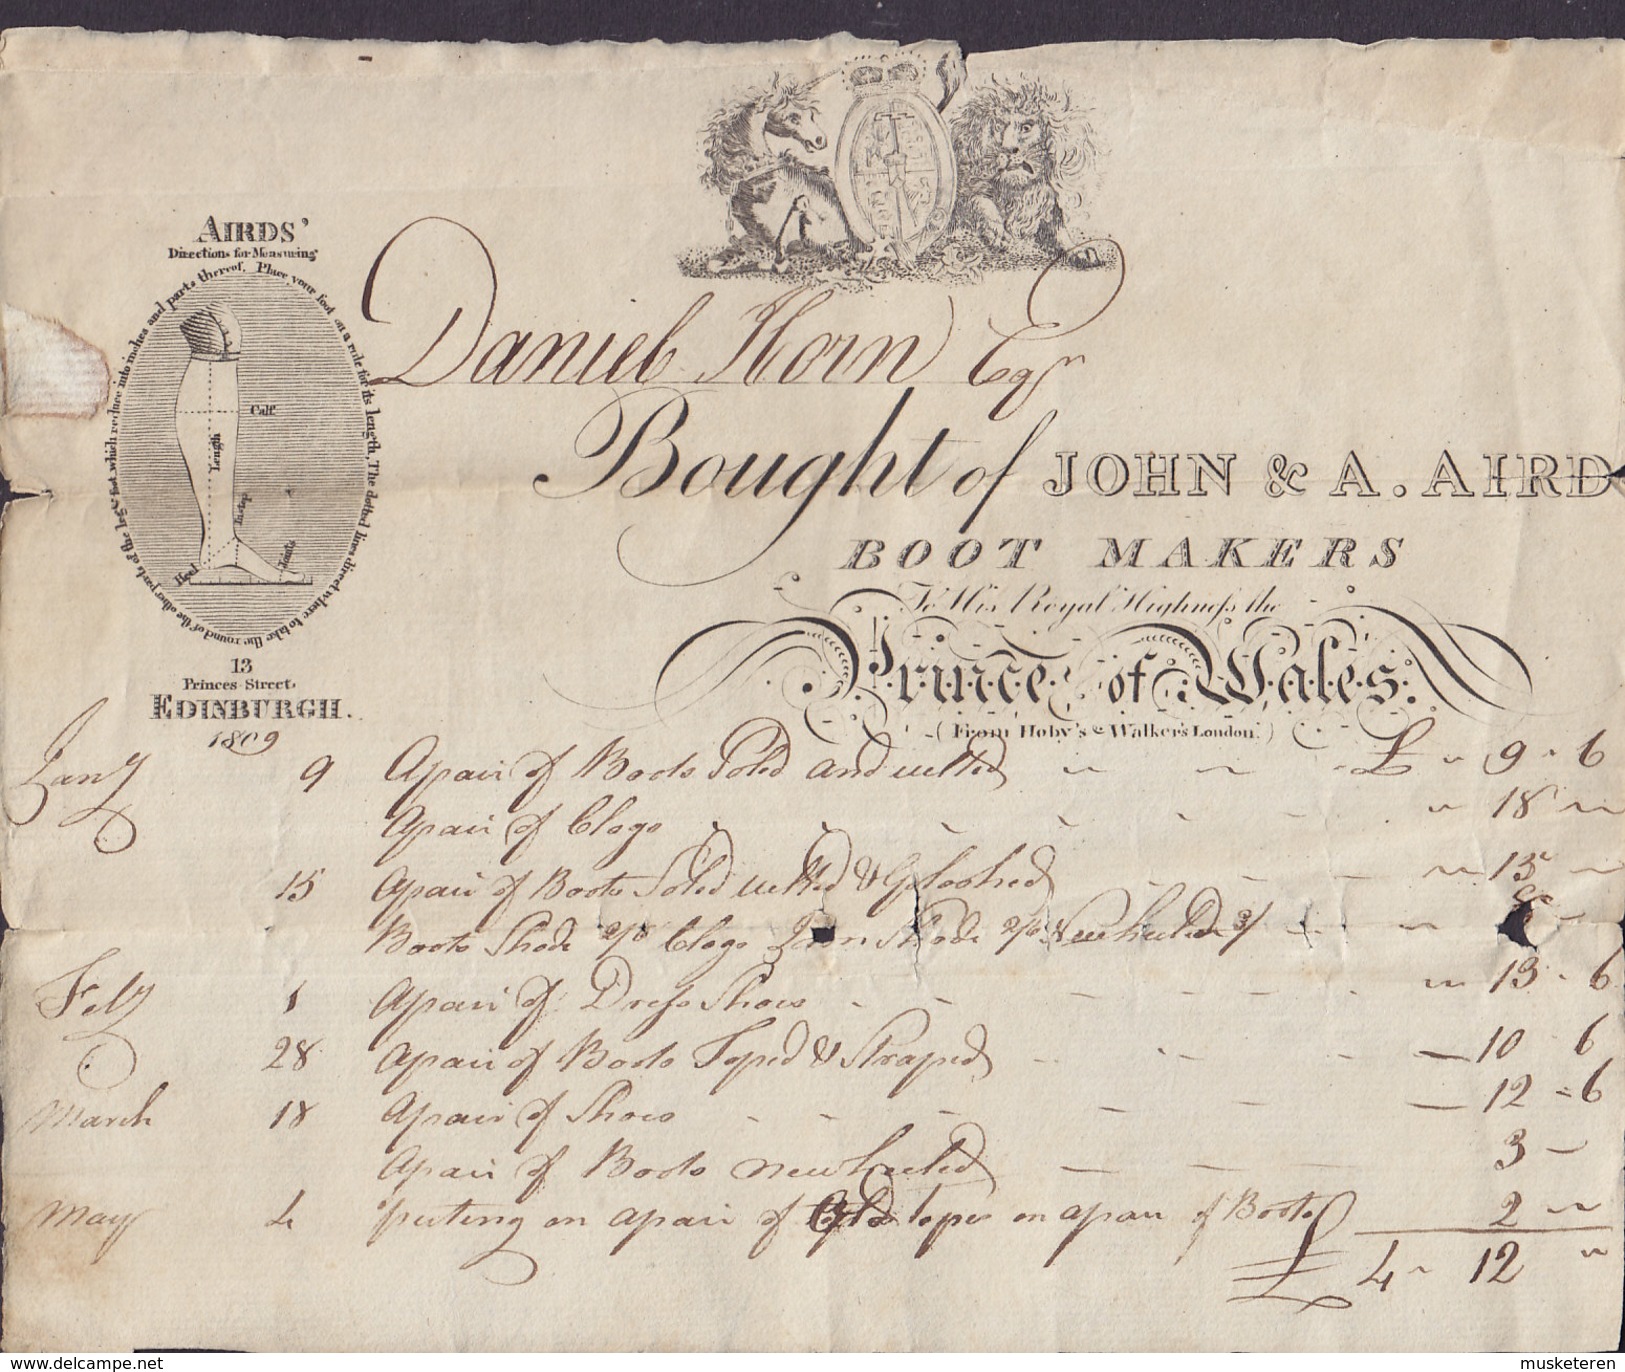 AIRDS'
Directions for Measuring
Place your foot on a rule for its length, The dotted lines direct where to take the round of the other parts of the leg &c. which reduce into inches and parts thereof.
Calf
Length
Instep
Heel
Joints
13
Princes Street,
EDINBURGH.
1809
Daniel Horn Esqr
Bought of JOHN & A. AIRD
BOOT MAKERS
To His Royal Highness the
Prince of Wales.
(From Hoby's & Walker's London.)
Jany 9 Apair of Boots Soled and welted £ " 9 " 6
Apair of Clogs " 18 "
15 Apair of Boots Soled welted & Goloshed " 15 "
Boots Shod 2/6 Clogs Iron Shod 2/6 New heeled 3/
Feby 1 Apair of Dress Shoes " 13 - 6
28 Apair of Boots Toped & Straped 10 6
March 18 Apair of Shoes 12 = 6
Apair of Boots new heeled 3 -
May 4 puting on apair of Old topes on apair of Boots 2 "
£ 4 " 12 "
www.delcampe.net
musketeren